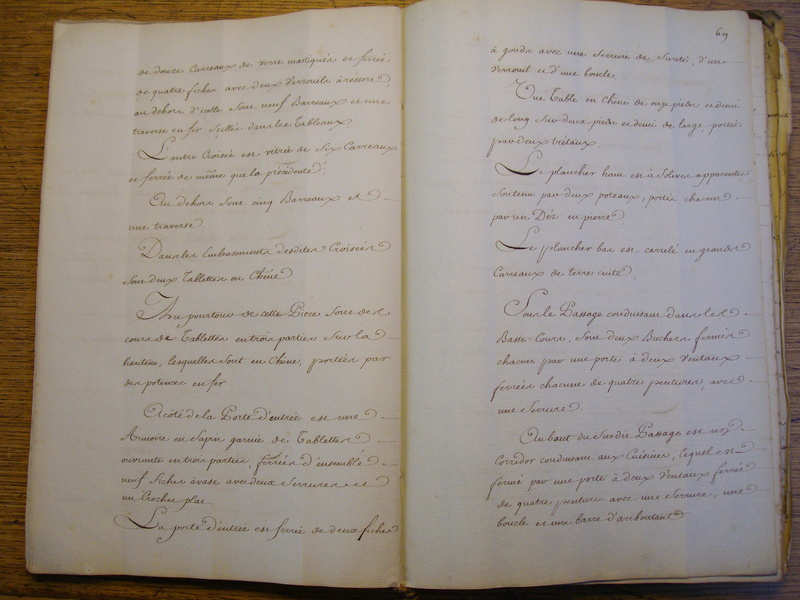 de douze Carreaux de verre mastiqués et ferrée
de quatre fiches avec deux Verrouils à ressort
au dehors d'icelle sont neuf Barreaux et une
traverse en fer scellés dans les Tableaux
L'autre Croisée est vitrée de Six Carreaux
et ferrée de même que la précédente.
Au dehors sont cinq Barreaux et
une traverse
Dans les Embrasements desdites Croisées
sont deux Tablettes en Chêne
Au pourtour de cette Piece sont des
cours de Tablettes en trois parties sur la
hauteur, lesquelles sont en Chêne, portées par
des potences en fer
A côté de la Porte d'entrée est une
Armoire en Sapin garnie de Tablettes
ouvrante en trois parties, ferrées d'ensemble
neuf fiches à vase avec deux Serrures et
un Crochet plat
La porte d'entrée est ferrée de deux fiches
69
à gonds avec une Serrure de Sureté, d'un
Verrouil et d'une boucle.
Une Table en Chêne de onze pieds et demi
de long sur deux pieds et demi de large portée
par deux tréteaux.
Le plancher haut est à Solives apparentes
Soutenu par deux poteaux, portés chacun
par un Déz en pierre
Le plancher bas est carrelé en grands
Carreaux de terre cuite
Sous le Passage conduisant dans les
Basse-Cours, sont deux Buchers fermés
chacun par une porte à deux Ventaux
ferrées chacune de quatre pentures, avec
une Serrure.
Au bout du susdit Passage est un
Corridor conduisant aux Cuisines, lequel est
fermé par une porte à deux Ventaux ferrée
de quatre pentures avec une Serrure, une
boucle et une barre d'arcboutant